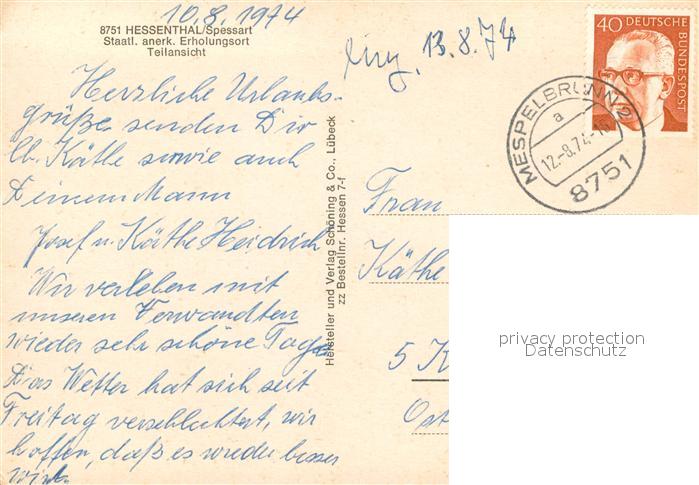 10.8.1974
8751 HESSENTHAL/Spessart
Staatl. anerk. Erholungsort
Teilansicht
Herzliche Urlaubs-
grüße senden Dir
lb. Käthe sowie auch
Deinem Mann
Josef u. Käthe Heidrich
Wir verleben mit
unseren Verwandten
wieder sehr schöne Tage
Das Wetter hat sich seit
Freitag verschlechtert, wir
hoffen, daß es wieder besser
wird.
Hersteller und Verlag Schöning & Co., Lübeck
zz Bestellnr. Hessen 7-f
13.8.74
40 DEUTSCHE
BUNDESPOST
MESPELBRUNN 2
a
12.-8.74-16
8751
Frau
Käthe
5 K
Ost
privacy protection
Datenschutz